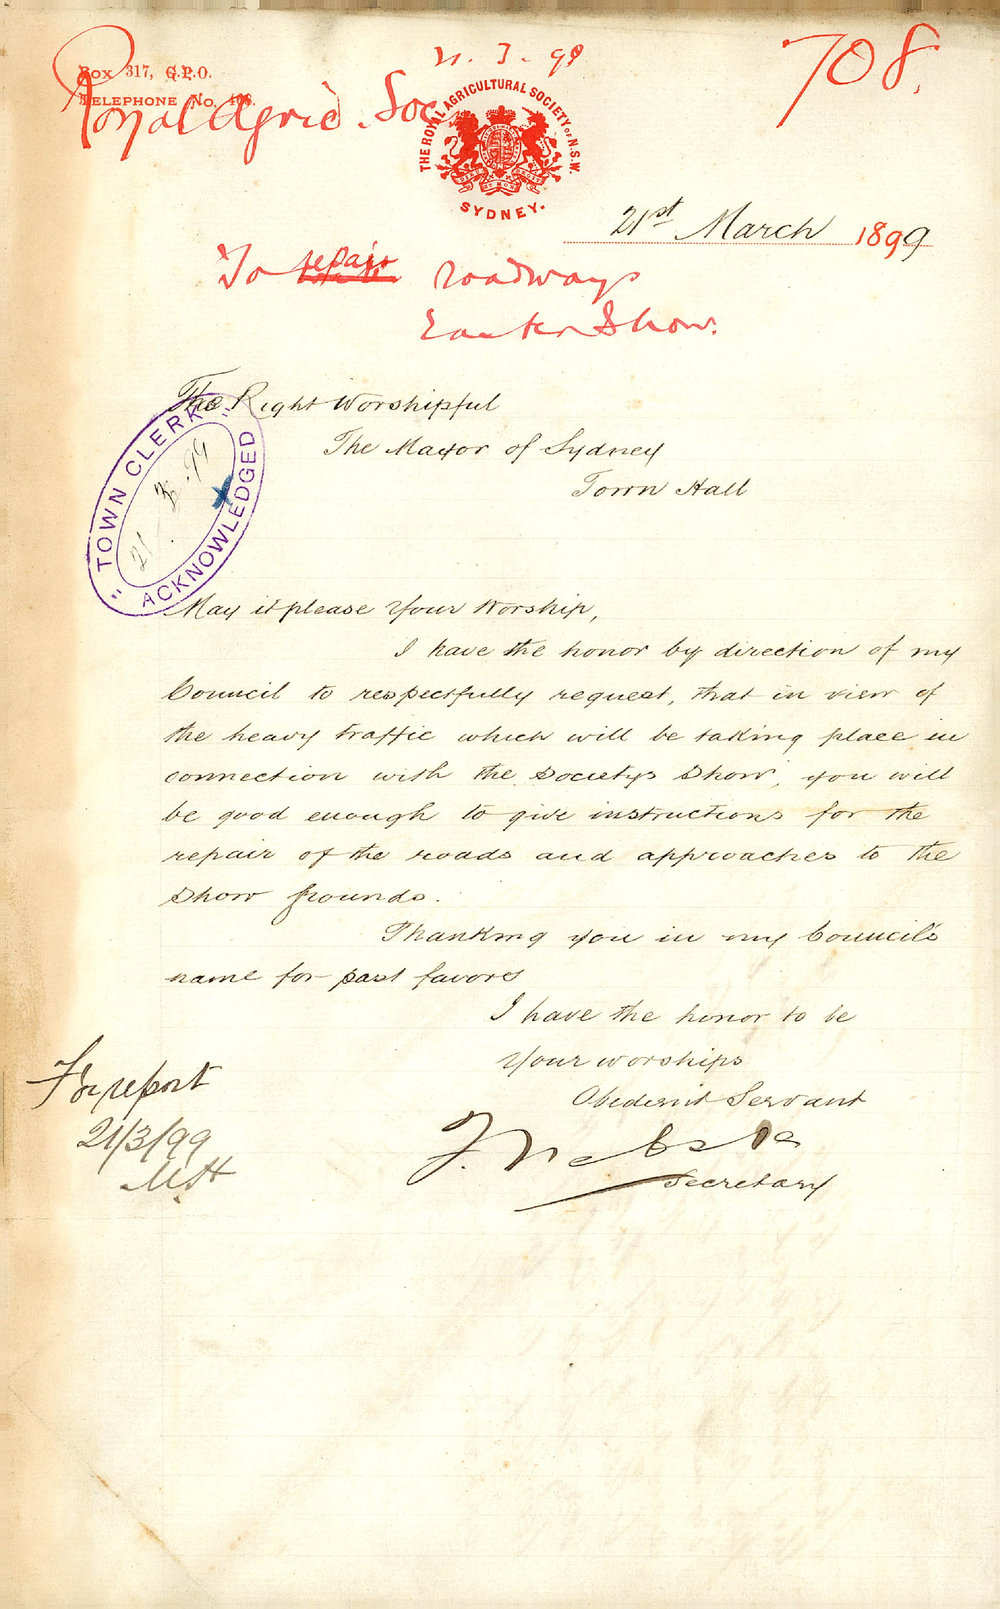 21.3.99
708.
Box 317, G.P.O.
Telephone No.
Royal Agric. Soc.
THE ROYAL AGRICULTURAL SOCIETY OF N.S.W.
SYDNEY.
21st March 1899
To repair roadways
Easter Show.
The Right Worshipful
The Mayor of Sydney
Town Hall
"TOWN CLERK"
21.3.99
ACKNOWLEDGED
May it please Your Worship,
I have the honor by direction of my
Council to respectfully request, that in view of
the heavy traffic which will be taking place in
connection with the Societys Show, you will
be good enough to give instructions for the
repair of the roads and approaches to the
Show Grounds.
Thanking you in my Council's
name for past favors
I have the honor to be
Your worships
Obedient Servant
F. Webster
Secretary
For report
21/3/99